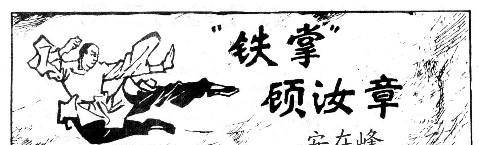 “铁掌”
顾汝章
安在峰